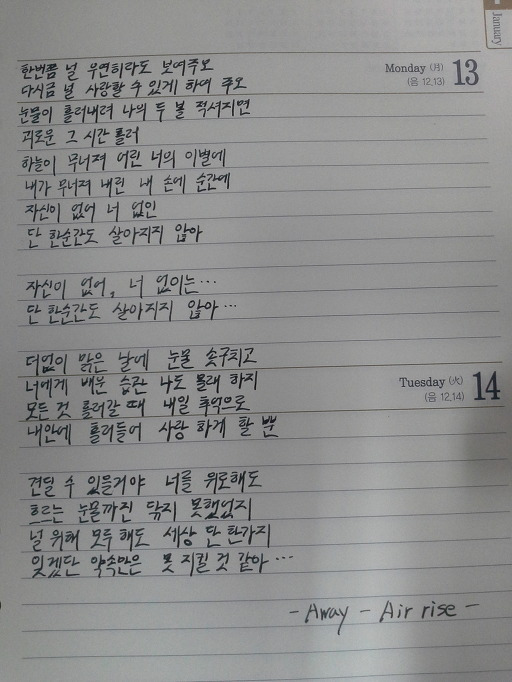 January
Monday (月) 13
(음 12.13)
한번쯤 널 우연히라도 보여주오
다시금 널 사랑할 수 있게 하여 주오
눈물이 흘러내려 나의 두 볼 적셔지면
괴로운 그 시간 흘러
하늘이 무너져 어린 너의 이별에
내가 무너져 내린 내 손에 순간에
자신이 없어 너 없인
단 한순간도 살아지지 않아
자신이 없어, 너 없이는…
단 한순간도 살아지지 않아…
더없이 맑은 날에 눈물 솟구치고
Tuesday (火) 14
(음 12.14)
너에게 배운 습관 나도 몰래 하지
모든 것 흘러갈 때 내일 추억으로
내안에 흘러들어 사랑 하게 할 뿐
견딜 수 있을거야 너를 위로해도
흐르는 눈물까진 닦지 못했었지
널 위해 모두 해도 세상 단 한가지
잊겠단 약속만은 못 지킬 것 같아…
- Away - Air rise -